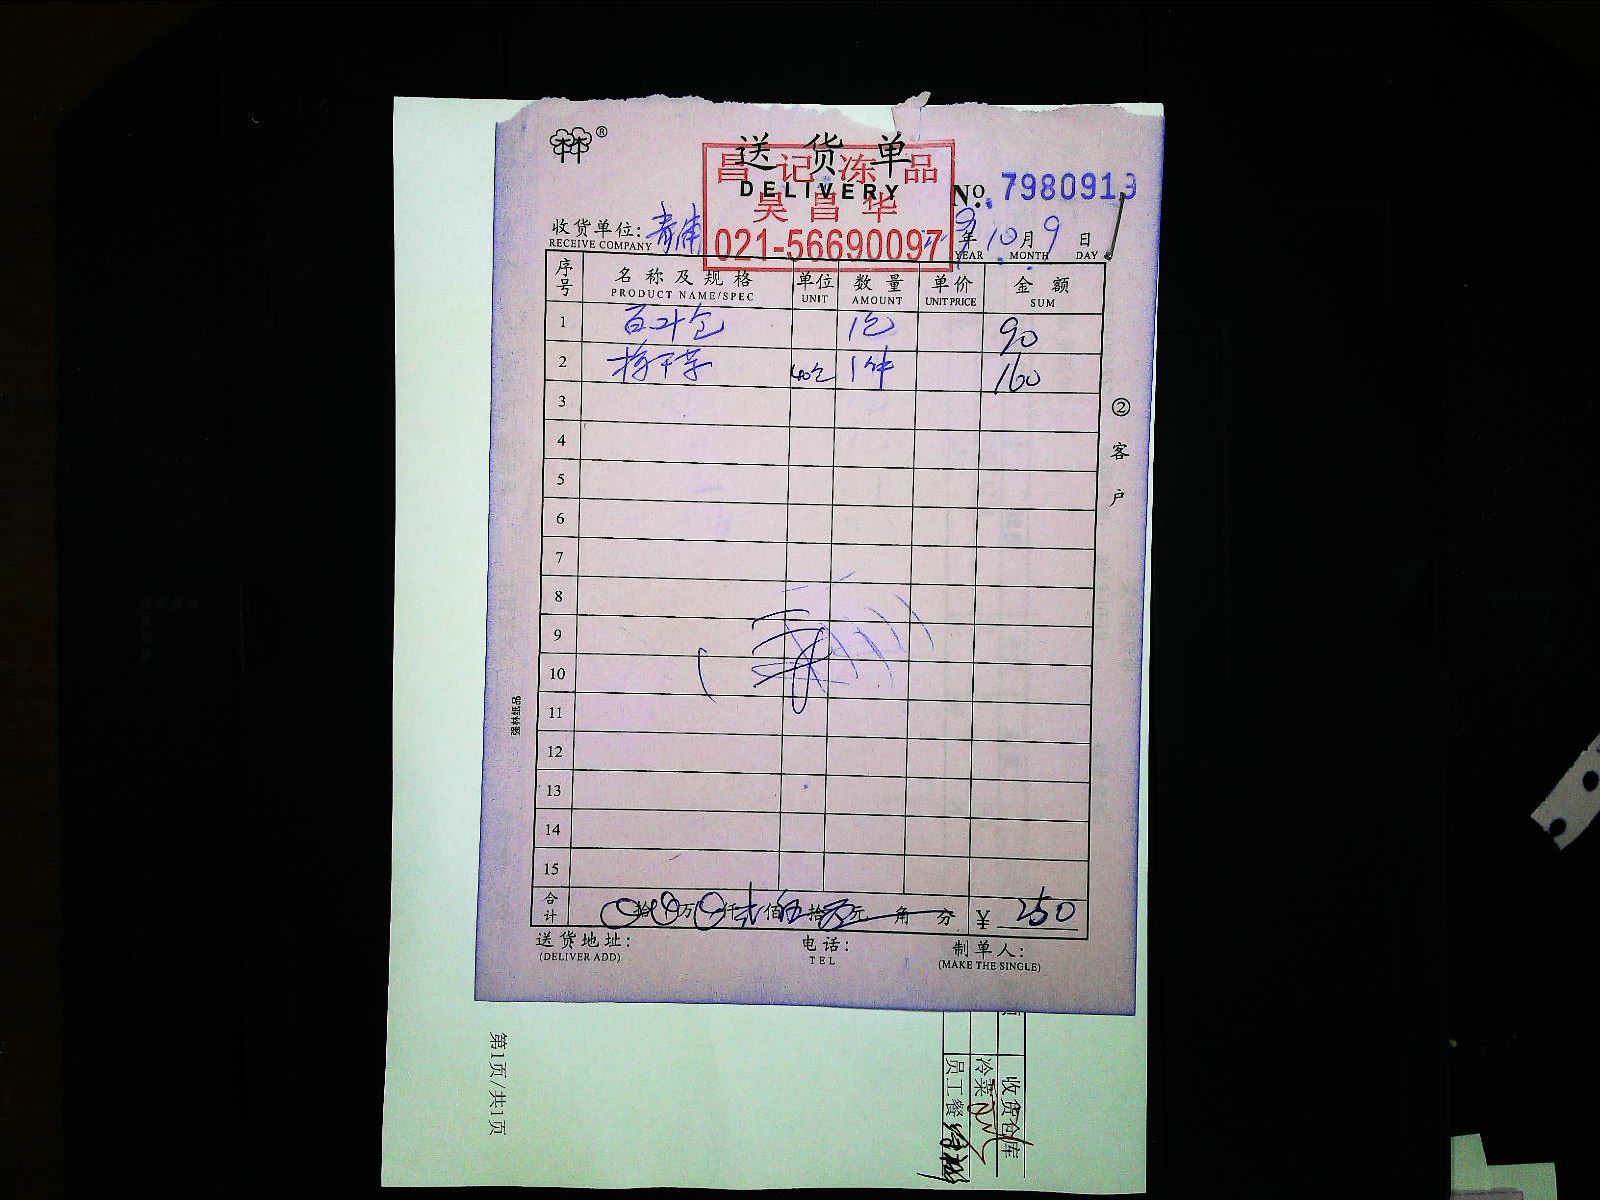 林®
送货单
DELIVERY
昌记冻品
吴昌华
021-56690097
No. 7980919
收货单位: 青浦
RECEIVE COMPANY
年 10 月 9 日
YEAR MONTH DAY
序号 名称及规格 单位 数量 单价 金额
PRODUCT NAME/SPEC UNIT AMOUNT UNIT PRICE SUM
1 百叶包 1包 90
2 梅干菜 40包 1件 160
3
4
5
6
7
8
9
10
11
12
13
14
15
合计 拾 万 仟 贰 佰 伍 拾 元 角 分 ¥ 250
送货地址: 电话: 制单人:
(DELIVER ADD) TEL (MAKE THE SINGLE)
②客户
强林纸品
第1页/共1页
收货仓库
冷菜
员工餐